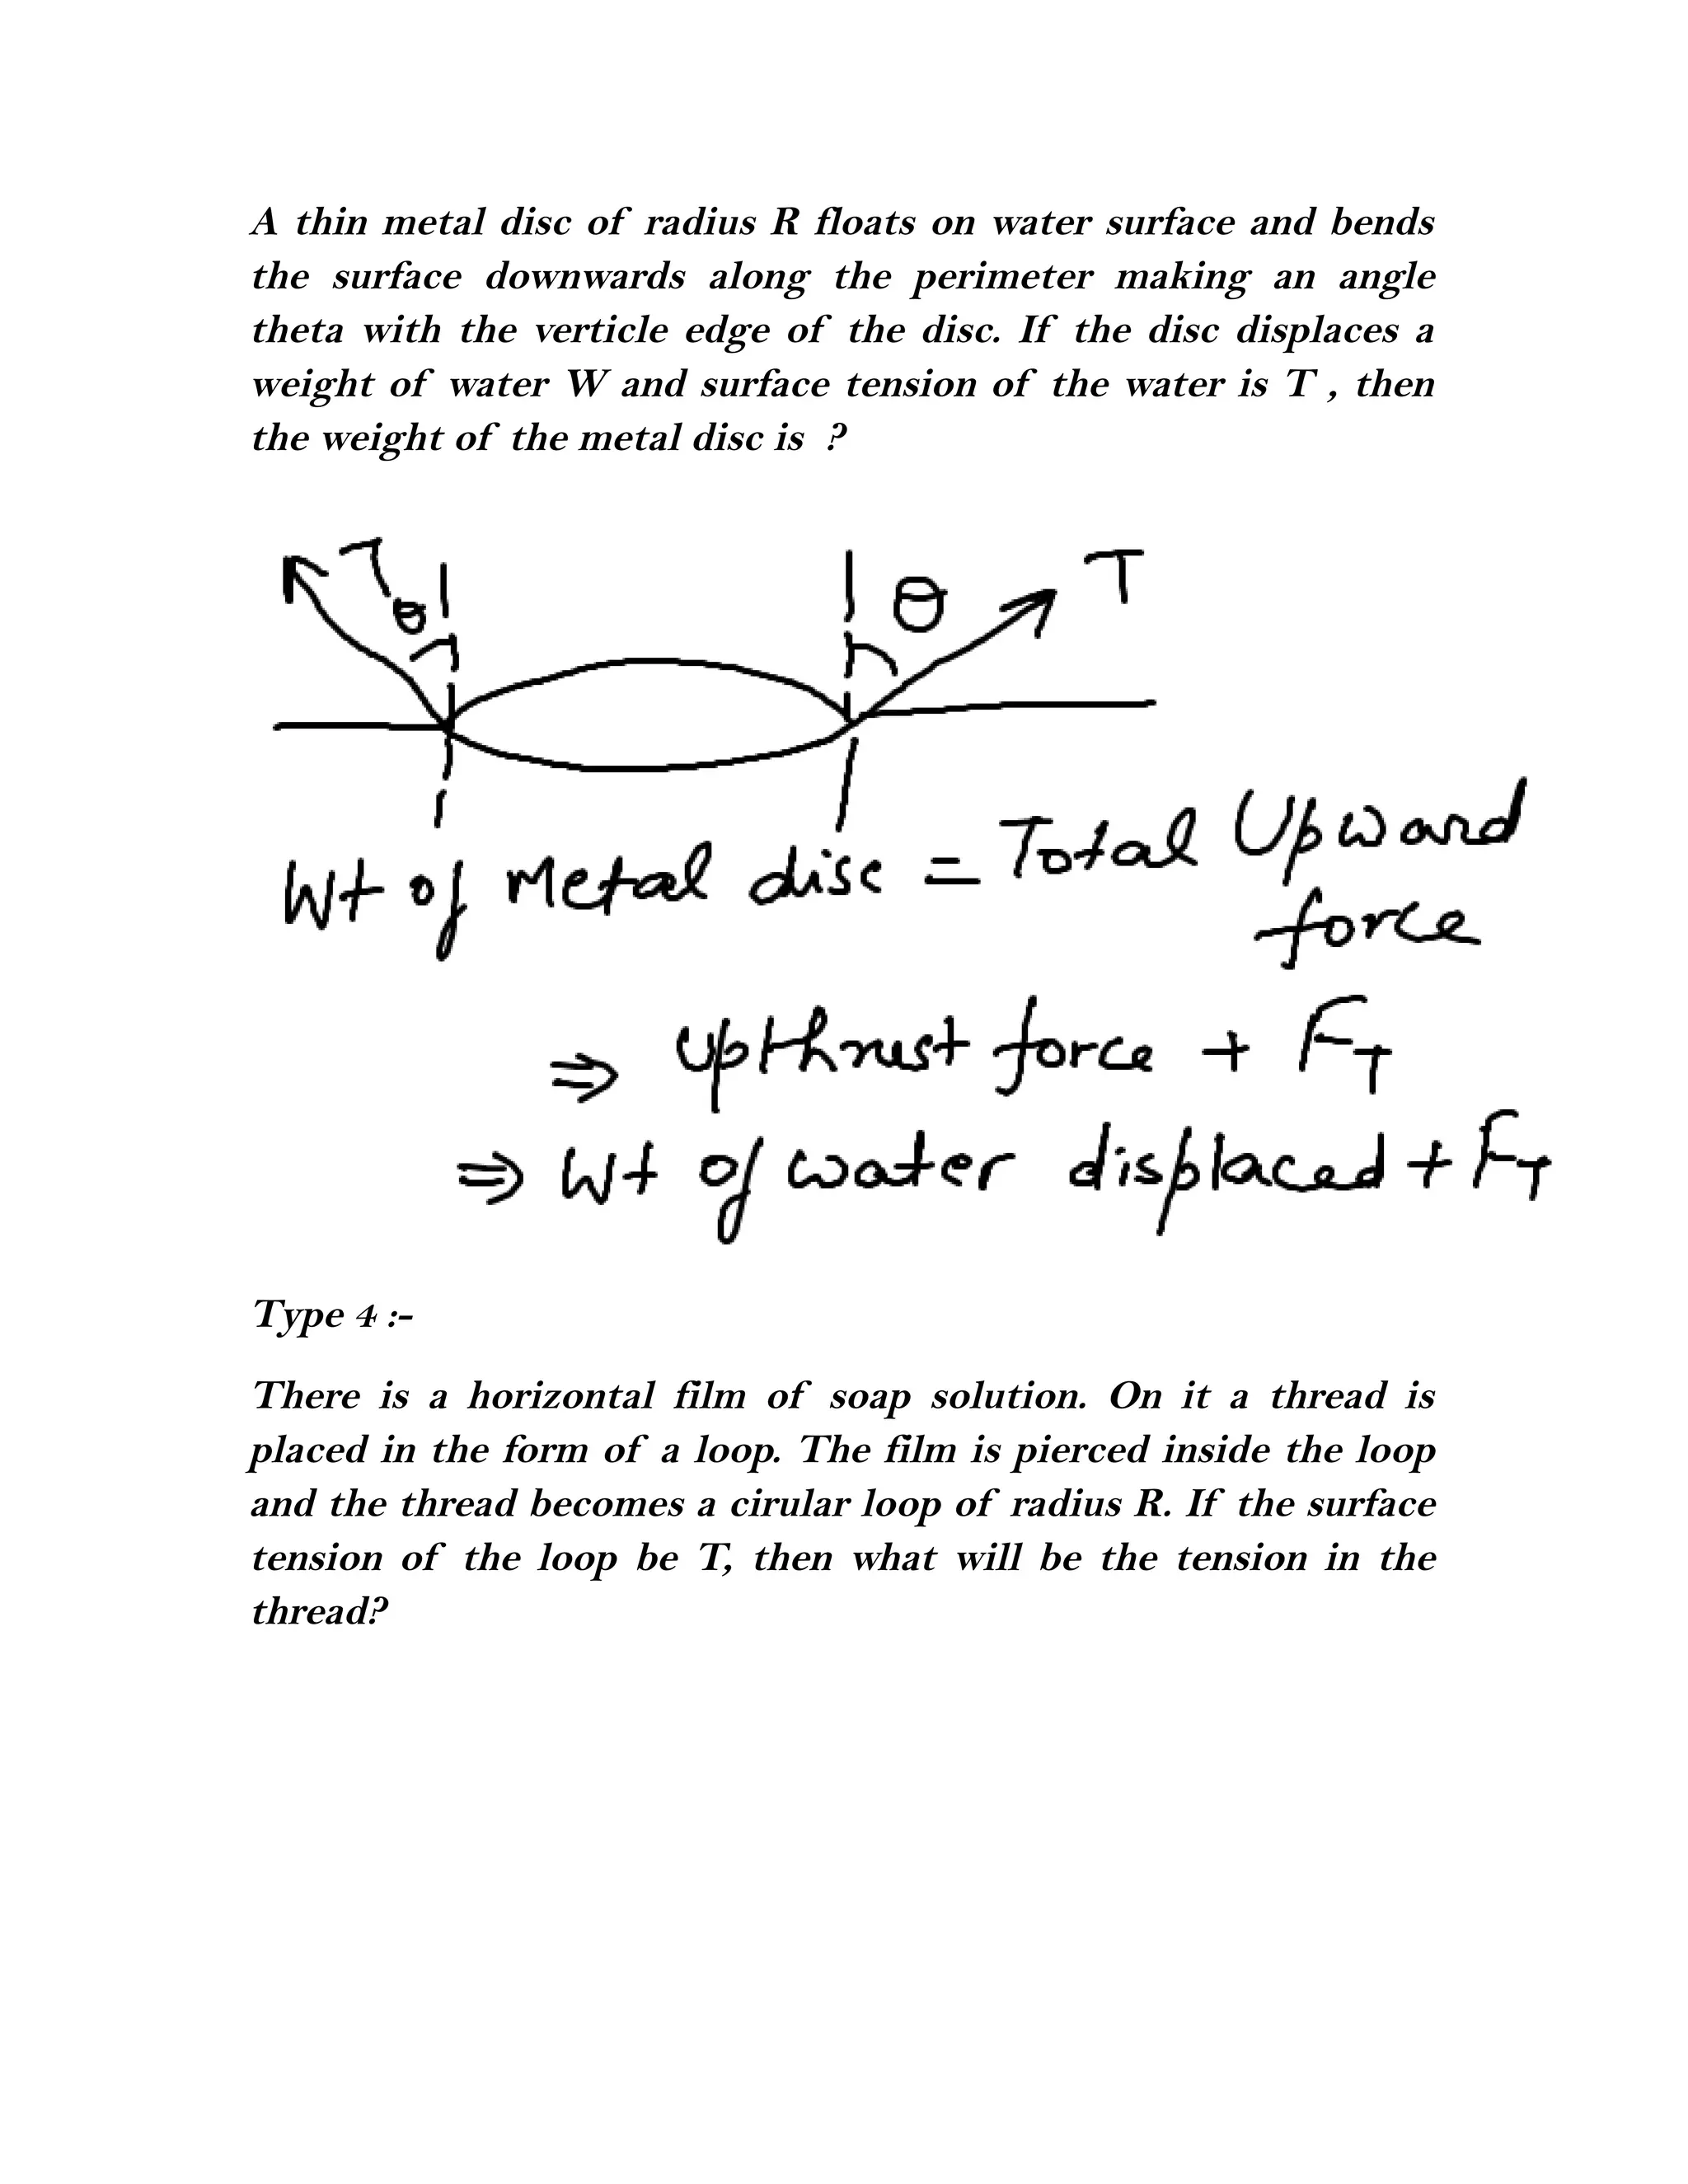 A thin metal disc of radius R floats on water surface and bends
the surface downwards along the perimeter making an angle
theta with the verticle edge of the disc. If the disc displaces a
weight of water W and surface tension of the water is T , then
the weight of the metal disc is ?
T θ θ T
Wt of Metal disc = Total Upward
force
⇒ upthrust force + F_T
⇒ Wt of water displaced + F_T
Type 4 :-
There is a horizontal film of soap solution. On it a thread is
placed in the form of a loop. The film is pierced inside the loop
and the thread becomes a cirular loop of radius R. If the surface
tension of the loop be T, then what will be the tension in the
thread?